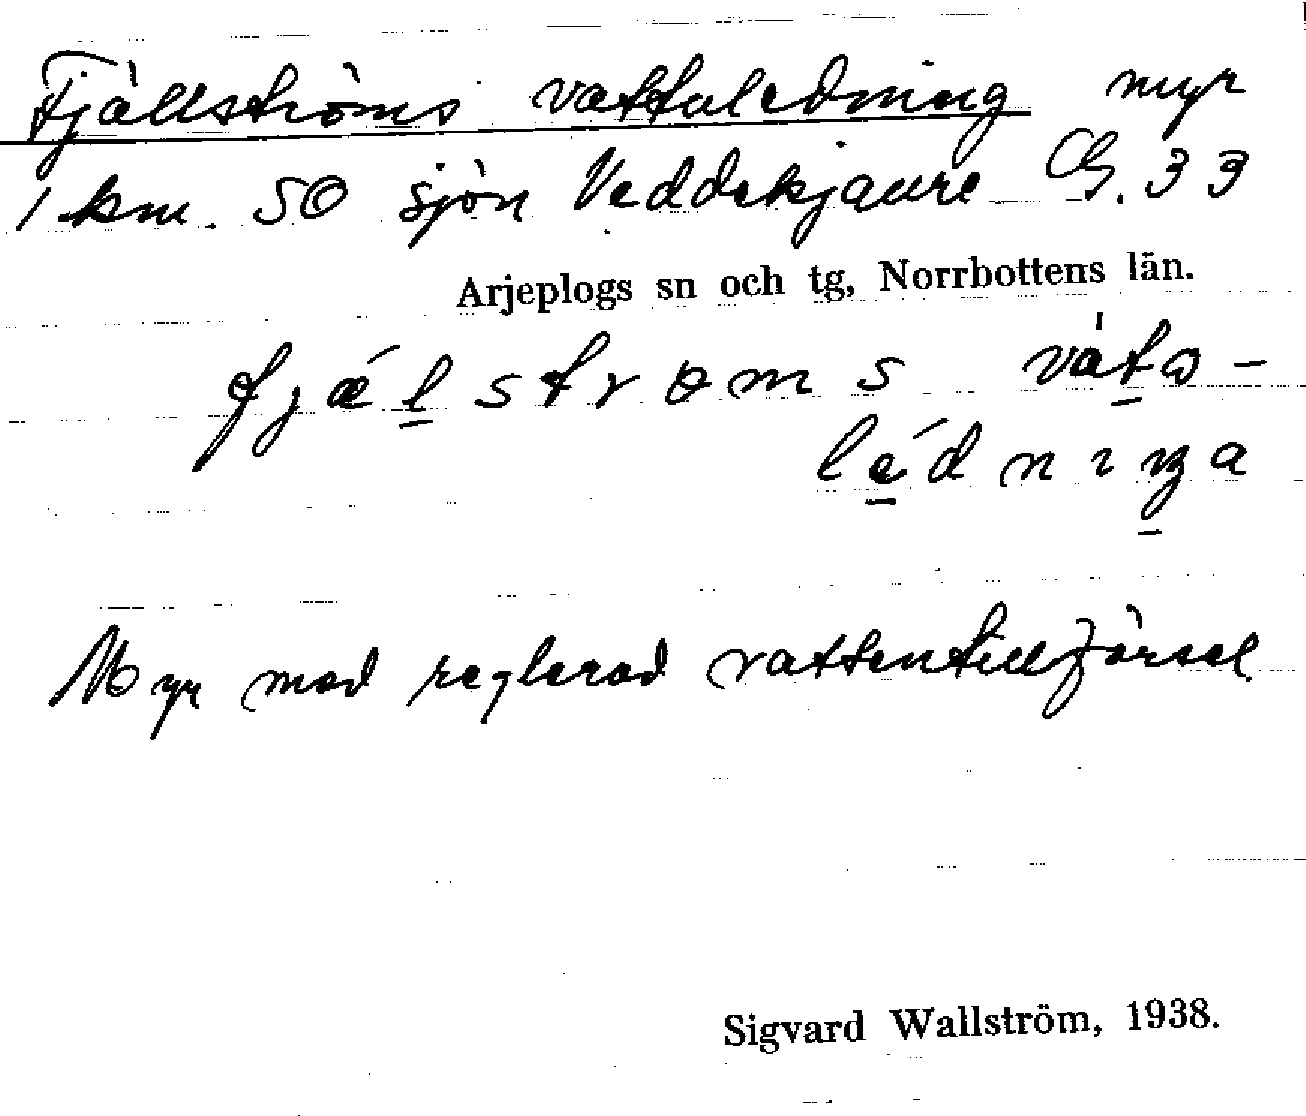 Fjällströms vattuledning myr
1 km. SO sjön Veddekjaure G. 33
Arjeplogs sn och tg, Norrbottens län.
fjǽlstrøms
lédniŋa
Myr med reglerad vattentillförsel
Sigvard Wallström, 1938.